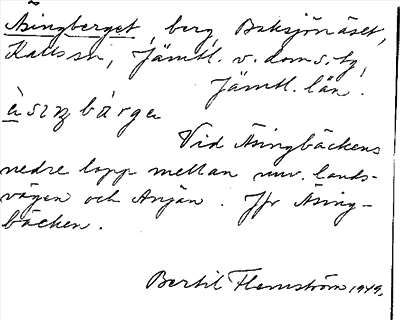 Åsingberget, berg, Baksjönäset,
Kalls sn, Jämtl. v. doms.tg,
Jämtl. län.
Vid Åsingbäckens
nedre lopp mellan nuv. lands-
vägen och Anjan. Jfr Åsing-
bäcken.
Bertil Flemström 1949.